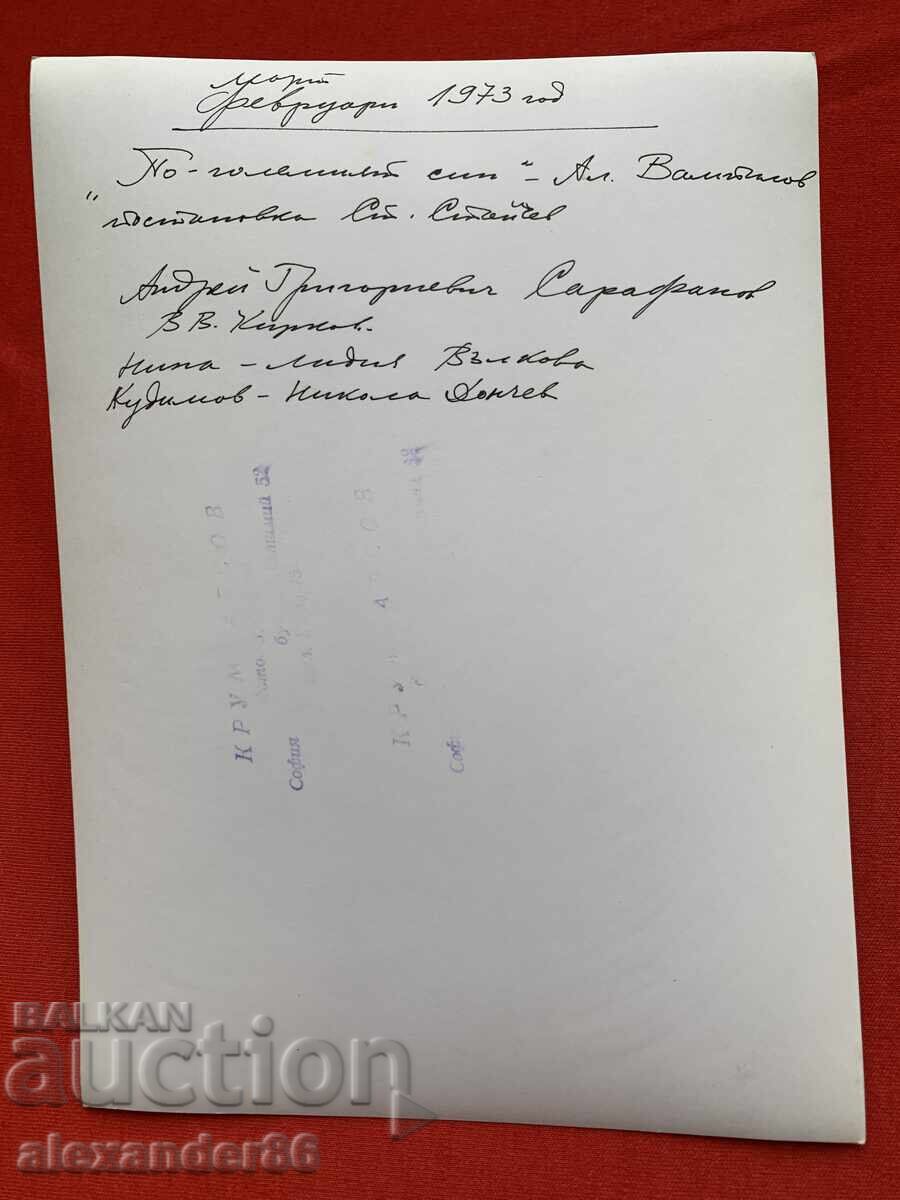 март
февруари 1973 год
"По-големият син" - Ал. Вампилов
постановка Ст. Стайчев
Андрей Григориевич Сарафанов
В В. Кирков.
Нина - Лидия Вълкова
Кудимов - Никола Дончев
КРУМ
София
52
КР
Соф
BALKAN
auction
alexander86